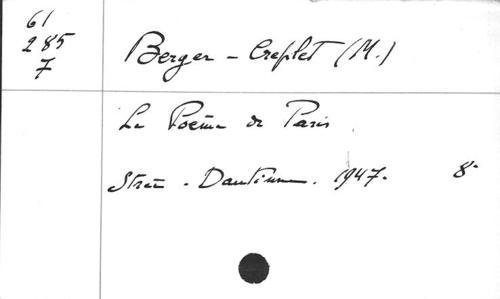 61
285
7
Berger - Creplet (M.)
Le Poème de Paris
Strée . Dautrenne . 1947. 8°